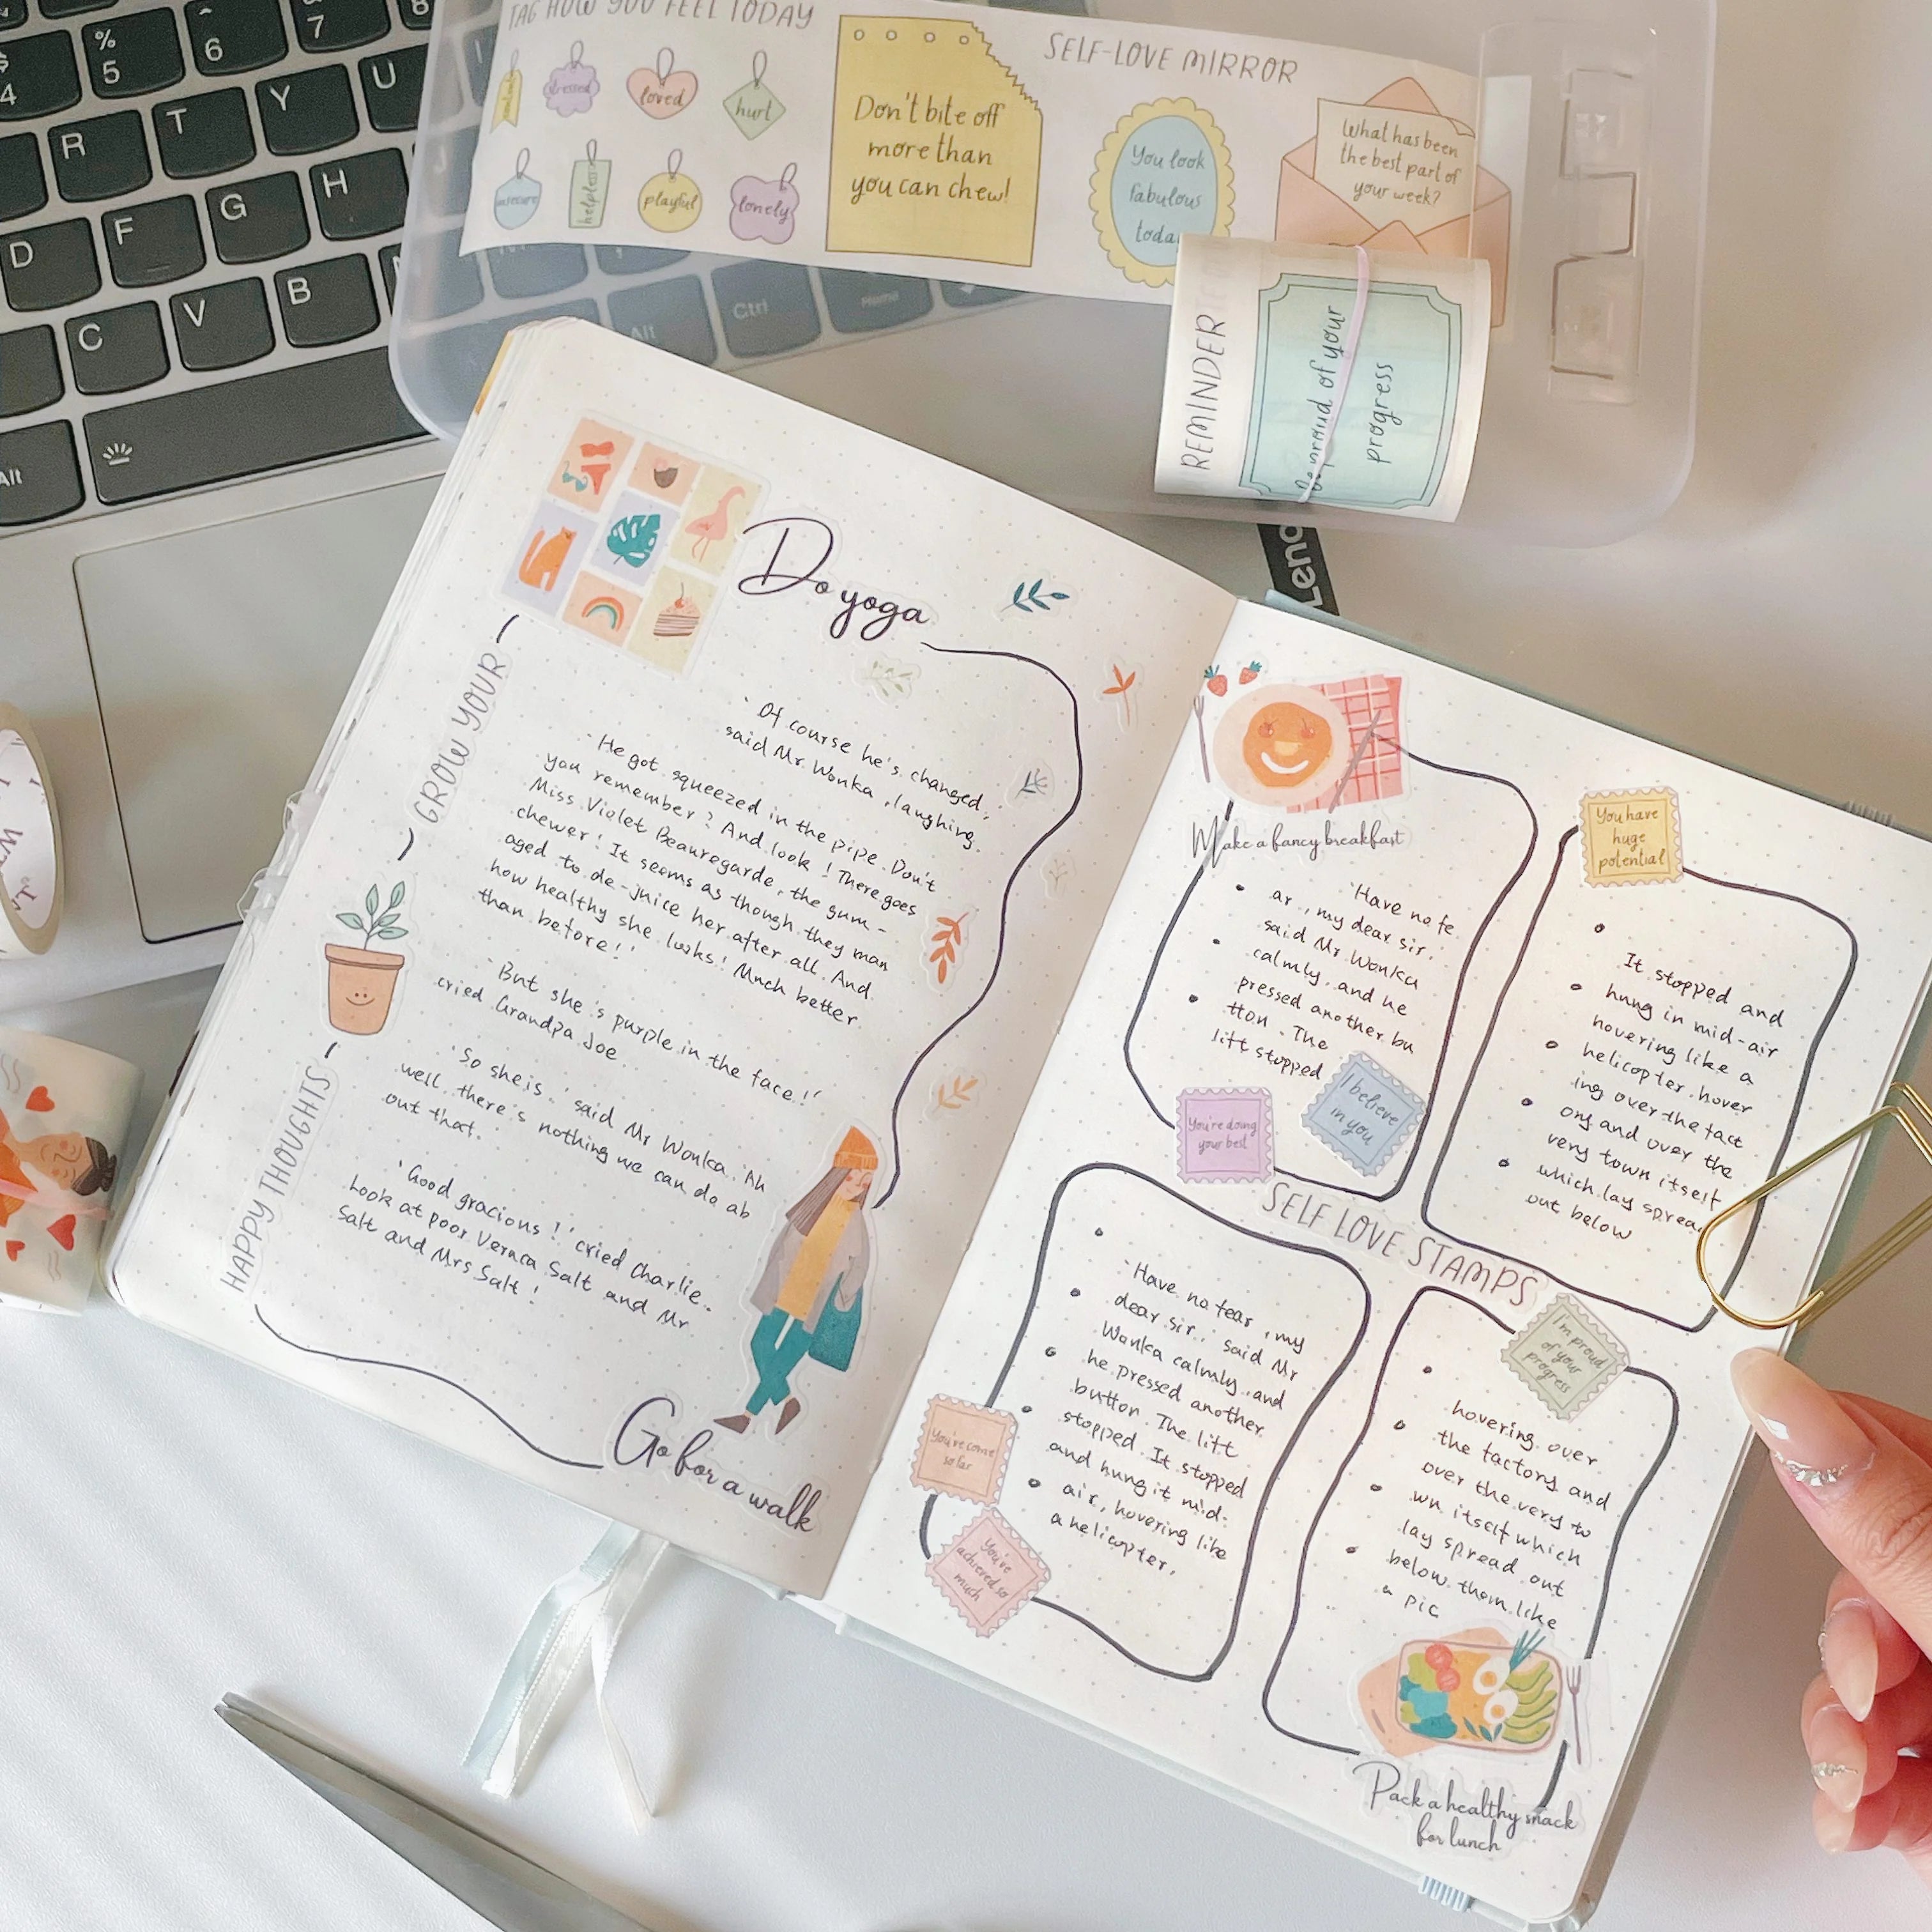 TAG HOW YOU FEEL TODAY
stressed
loved
hurt
insecure
helpless
playful
lonely
Don't bite off
more than
you can chew!
SELF-LOVE MIRROR
You look
fabulous
today
What has been
the best part of
your week?
REMINDER
Be proud of your
progress
$
4
%
5
^
6
7
8
R
T
Y
U
D
F
G
H
C
V
B
Alt
Alt
Ctrl
Home
Leno
Do yoga
GROW YOUR
HAPPY THOUGHTS
'Of course he's changed,'
said Mr. Wonka, laughing.
'He got squeezed in the pipe. Don't
you remember? And look! There goes
Miss Violet Beauregarde, the gum-
chewer! It seems as though they man
aged to de-juice her after all. And
how healthy she looks! Much better
than before!'
'But she's purple in the face!'
cried Grandpa Joe.
'So she is,' said Mr Wonka. 'Ah
well, there's nothing we can do ab
out that.'
'Good gracious!' cried Charlie.
Look at poor Veruca Salt and Mr
Salt and Mrs Salt!
Go for a walk
Make a fancy breakfast
'Have no fe
ar, my dear sir,'
said Mr Wonka
calmly, and he
pressed another bu
tton. The
lift stopped
You're doing
your best
I believe
in you
You have
huge
potential
It stopped and
hung in mid-air
hovering like a
helicopter, hover
ing over the fact
ory and over the
very town itself
which lay spread
out below
SELF LOVE STAMPS
'Have no fear, my
dear sir,' said Mr
Wonka calmly, and
he pressed another
button. The lift
stopped. It stopped
and hung it mid-
air, hovering like
a helicopter,
You've come
so far
You've
achieved so
much
I'm proud
of your
progress
hovering over
the factory and
over the very to
wn itself which
lay spread out
below them like
a pic
Pack a healthy snack
for lunch